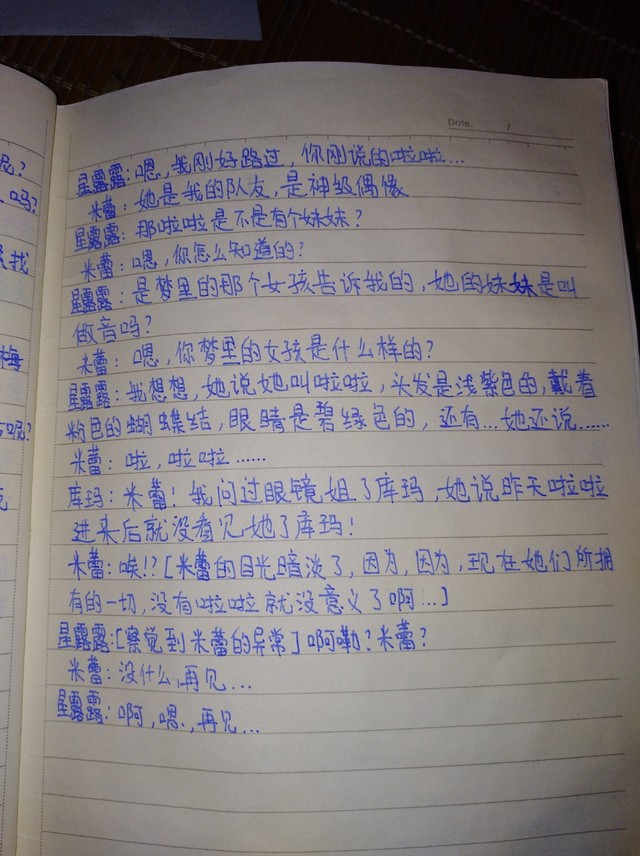 Date.    /
星露露：嗯，我刚好路过，你刚说的啦啦…
米蕾：她是我的队友，是神级偶像
星露露：那啦啦是不是有个妹妹？
米蕾：嗯，你怎么知道的？
星露露：是梦里的那个女孩告诉我的，她的妹妹是叫
做音吗？
米蕾：嗯，你梦里的女孩是什么样的？
星露露：我想想，她说她叫啦啦，头发是浅紫色的，戴着
粉色的蝴蝶结，眼睛是碧绿色的，还有…她还说……
米蕾：啦，啦啦……
库玛：米蕾！我问过眼镜姐了库玛，她说昨天啦啦
进来后就没看见她了库玛！
米蕾：唉!？[米蕾的目光暗淡了，因为，因为，现在她们所拥
有的一切，没有啦啦就没意义了啊…]
星露露：[察觉到米蕾的异常]啊嘞？米蕾？
米蕾：没什么，再见…
星露露：啊，嗯，再见…
呢？
吗？
找
梅
呢？